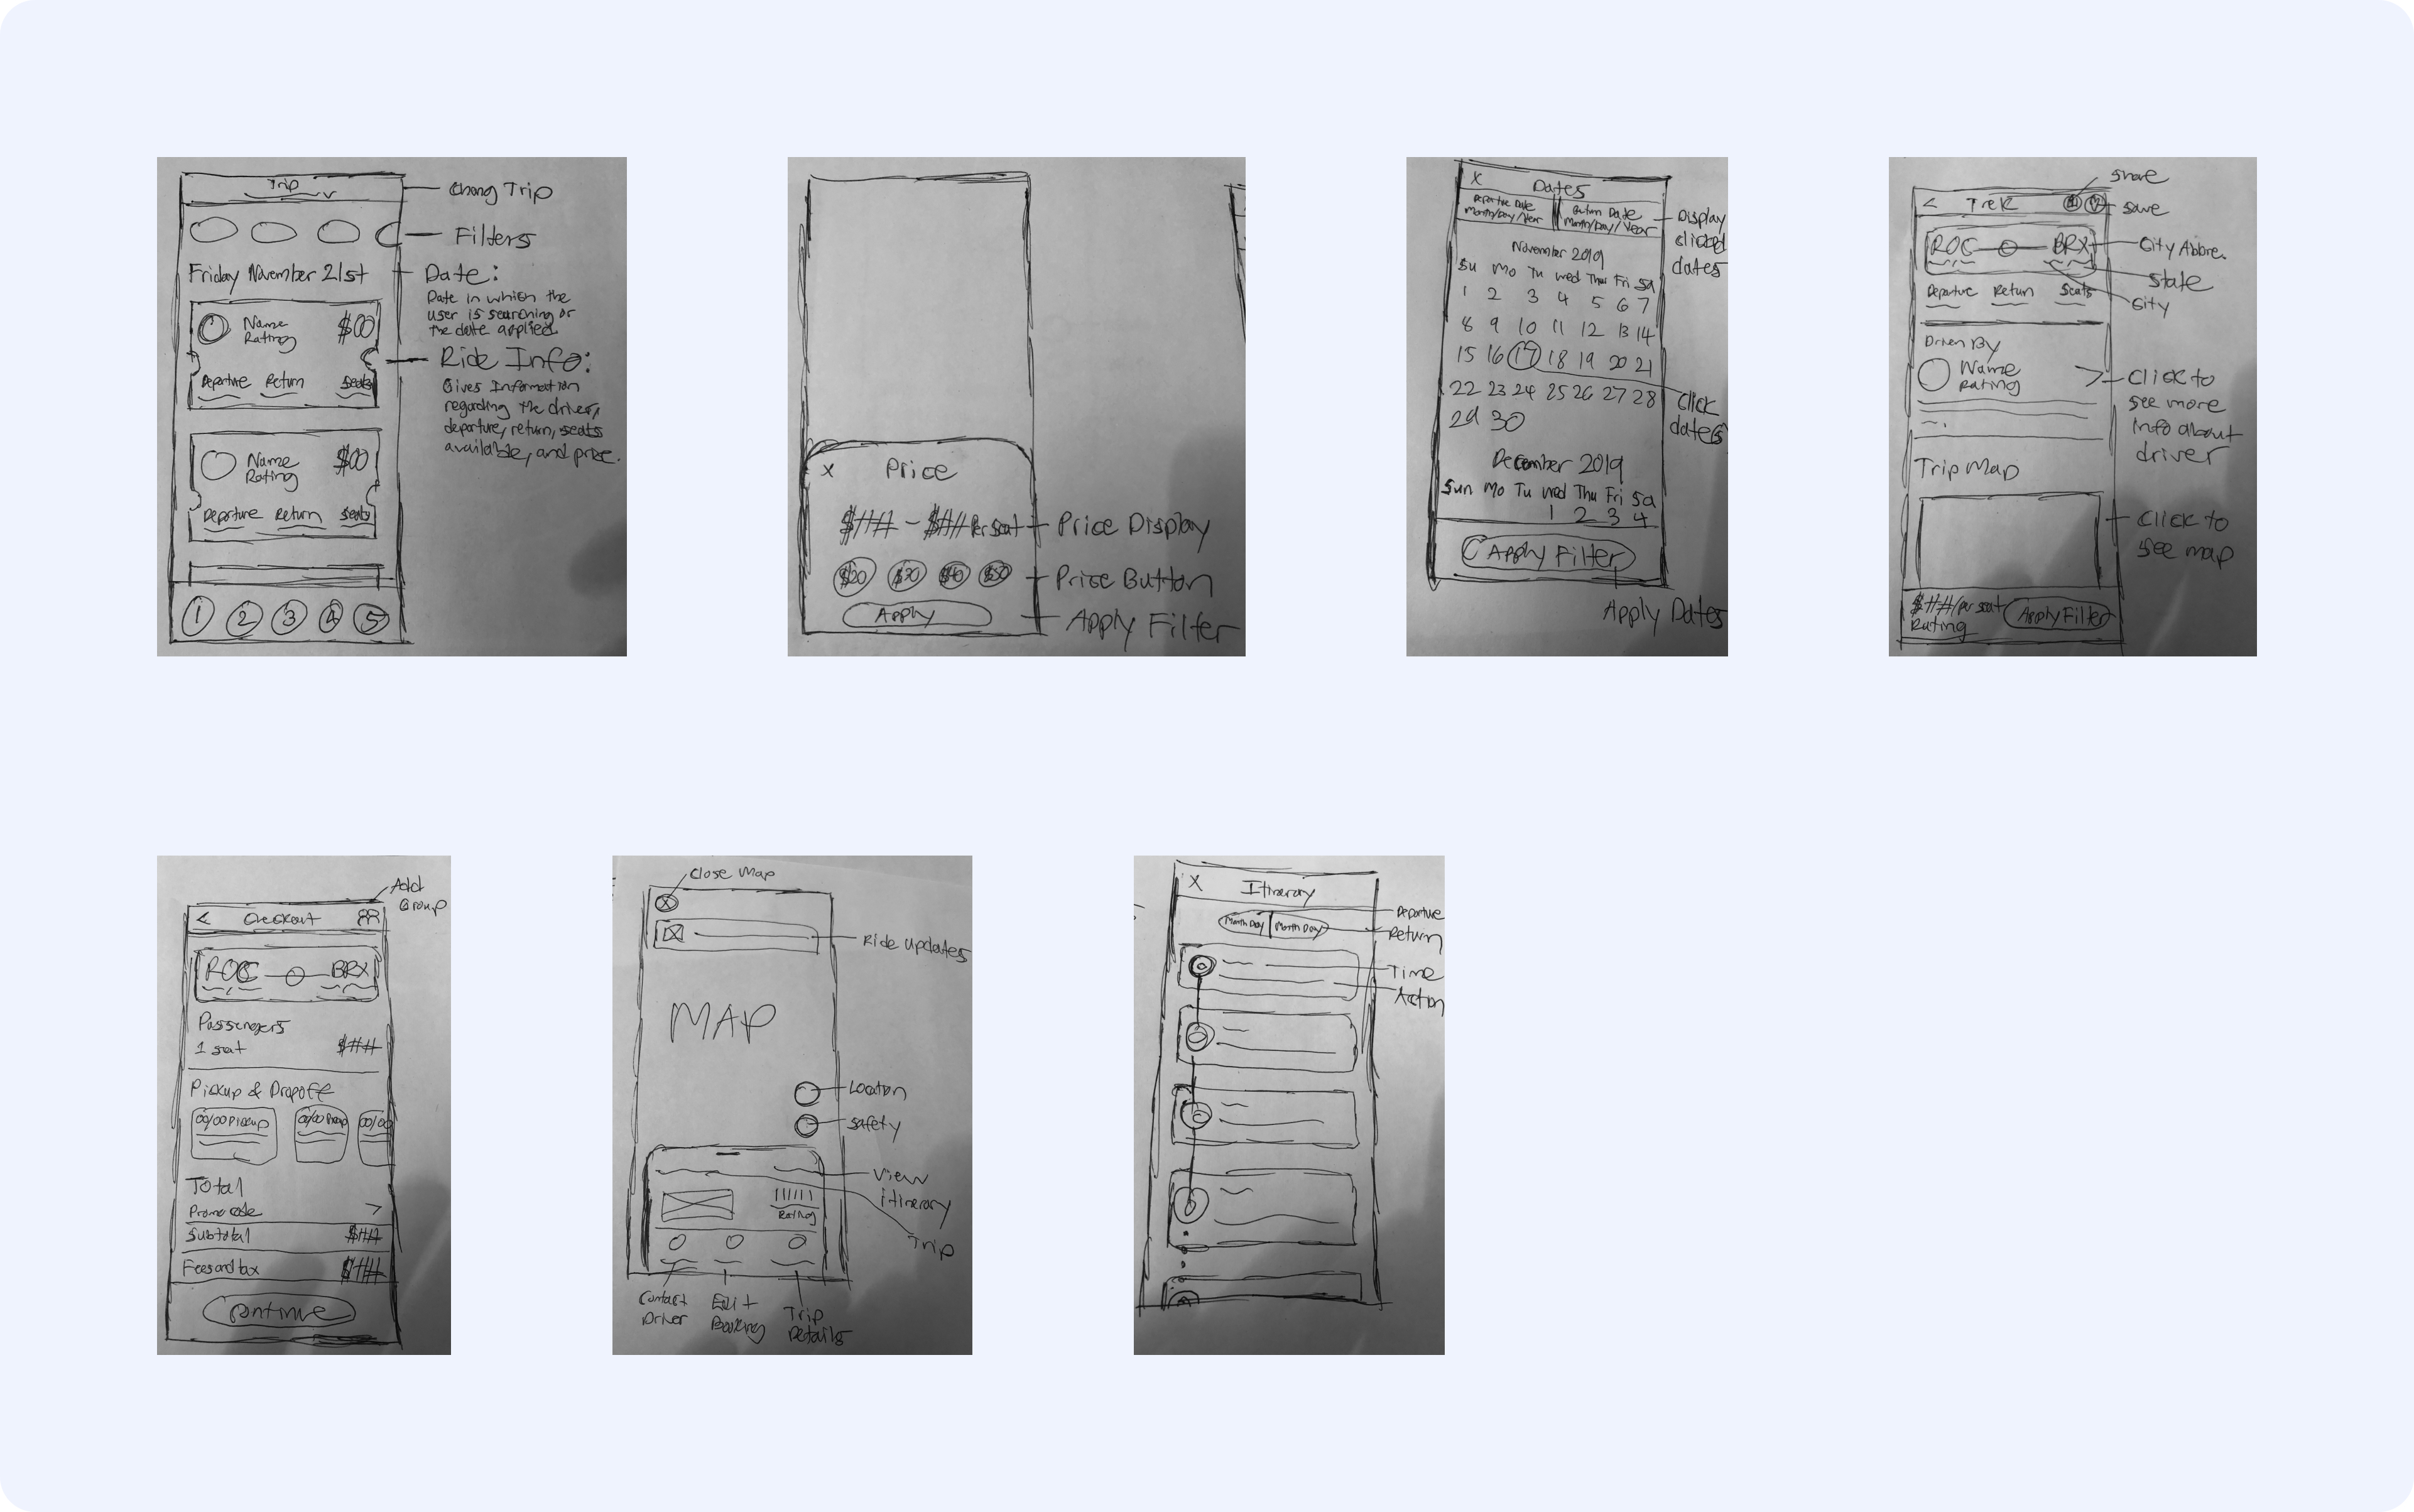 Trip
Chang Trip
Filters
Friday November 21st
Date:
Date in which the
user is searching or
the date applied
Name
Rating
$00
Ride Info:
Gives Information
regarding the driver,
departure, return, seats
available, and price.
Departure Return Seats
Name
Rating
$00
Departure Return Seats
1 2 3 4 5
X Price
$## - $## Per seat
Price Display
$20 $30 $40 $50
Price Button
Apply
Apply Filter
X Dates
Departure Date
Month/Day/Year
Return Date
Month/Day/Year
Display
clicked
dates
November 2019
Su Mo Tu wed Thu Fri Sa
1 2 3 4 5 6 7
8 9 10 11 12 13 14
15 16 17 18 19 20 21
22 23 24 25 26 27 28
29 30
click
dates
December 2019
Sun Mo Tu wed Thu Fri Sa
1 2 3 4
Apply Filter
Apply Dates
share
< Trek
save
ROC BRX
City Abbre.
State
City
Departure Return Seats
Driven By
Name
Rating
>
Click to
see more
info about
driver
Trip Map
Click to
see map
$##/per seat
Rating
Apply Filter
Add
Group
< Checkout
ROC BRX
Passengers
1 seat $##
Pickup & Dropoff
00/00 Pickup 00/00 00/00
Total
Promo code >
Subtotal $##
Fees and tax $##
Continue
Close Map
X
Ride Updates
MAP
Location
Safety
View
itinerary
Rating
Trip
Contact
Driver
Edit
Booking
Trip
Details
X Itinerary
Month Day Month Day
Departure
Return
Time
Action